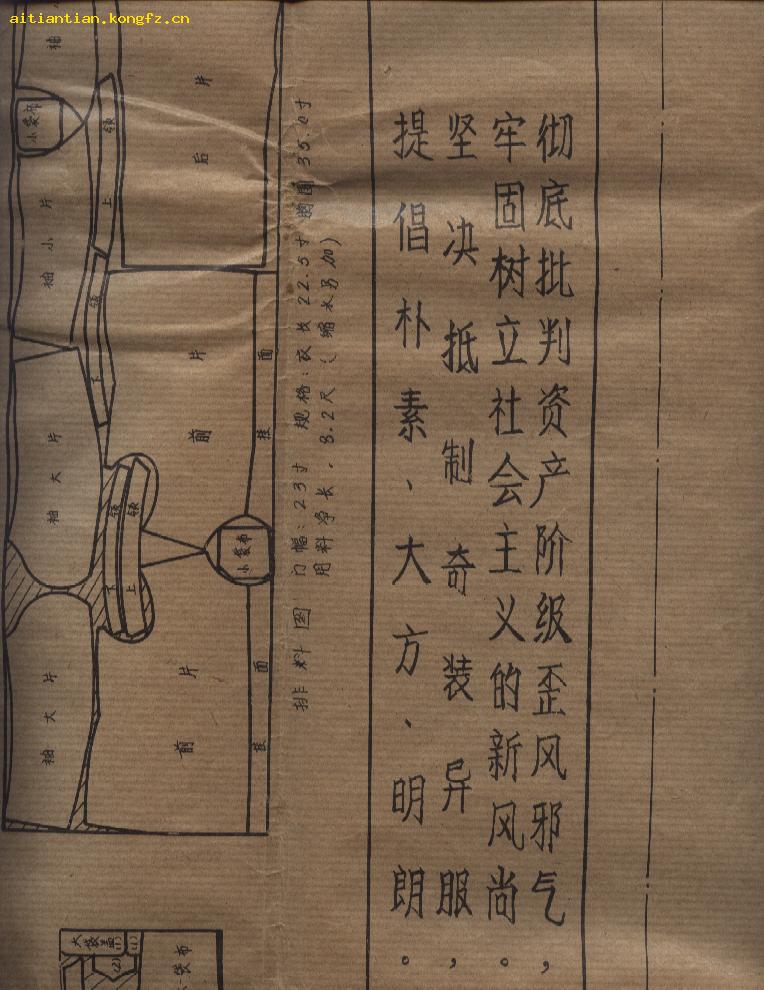 aitiantian.kongfz.cn
彻底批判资产阶级歪风邪气，
牢固树立社会主义的新风尚。
坚决抵制奇装异服，
提倡朴素、大方、明朗。
排料图 门幅：23寸 规格：衣长22.5寸 胸围35.0寸
用料净长：8.2尺（缩水另加）
后片
前片
挂面
前片
挂面
小袋布
上领
下领
上领
下领
小袋布
袖
袖小片
袖大片
袖大片
大袋盖(1)
(1)
(2)
袋布